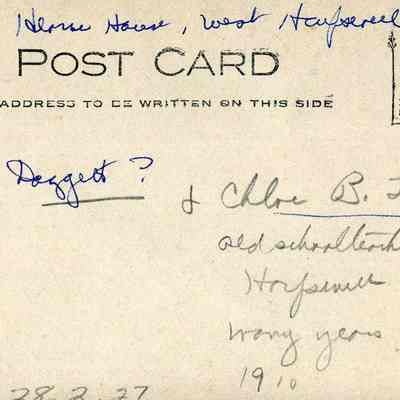 House, West Harpswell
POST CARD
ADDRESS TO BE WRITTEN ON THIS SIDE
Daggett ?
& Chloe B.
old schoolteach
Harpswell
many years
1910
28.2.27